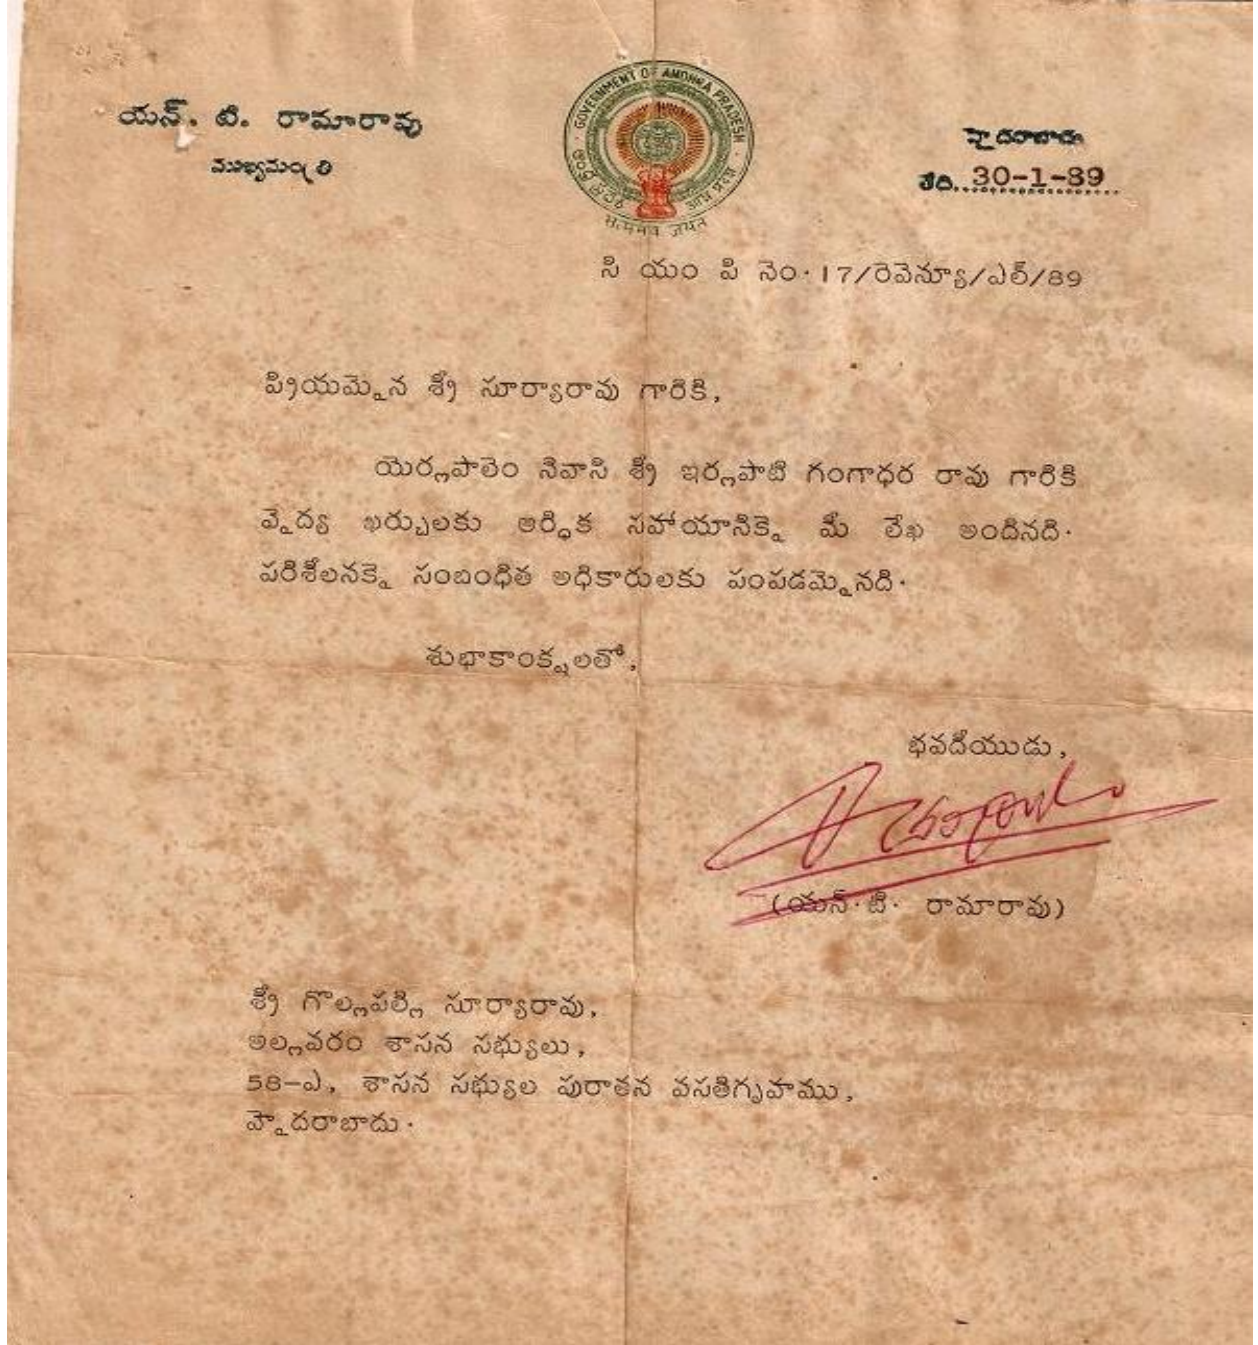 యన్. టి. రామారావు
ముఖ్యమంత్రి
GOVERNMENT OF ANDHRA PRADESH
హైదరాబాదు
తేది..30-1-89
సి యం పి నెం.17/రెవెన్యూ/ఎల్/89
ప్రియమైన శ్రీ సూర్యారావు గారికి,
యెర్లపాలెం నివాసి శ్రీ ఇర్లపాటి గంగాధర రావు గారికి
వైద్య ఖర్చులకు ఆర్ధిక సహాయానికై మీ లేఖ అందినది.
పరిశీలనకై సంబంధిత అధికారులకు పంపడమైనది.
శుభాకాంక్షలతో,
భవదీయుడు,
(యన్.టి. రామారావు)
శ్రీ గొల్లపల్లి సూర్యారావు,
అల్లవరం శాసన సభ్యులు,
58-ఎ, శాసన సభ్యుల పురాతన వసతిగృహము,
హైదరాబాదు.